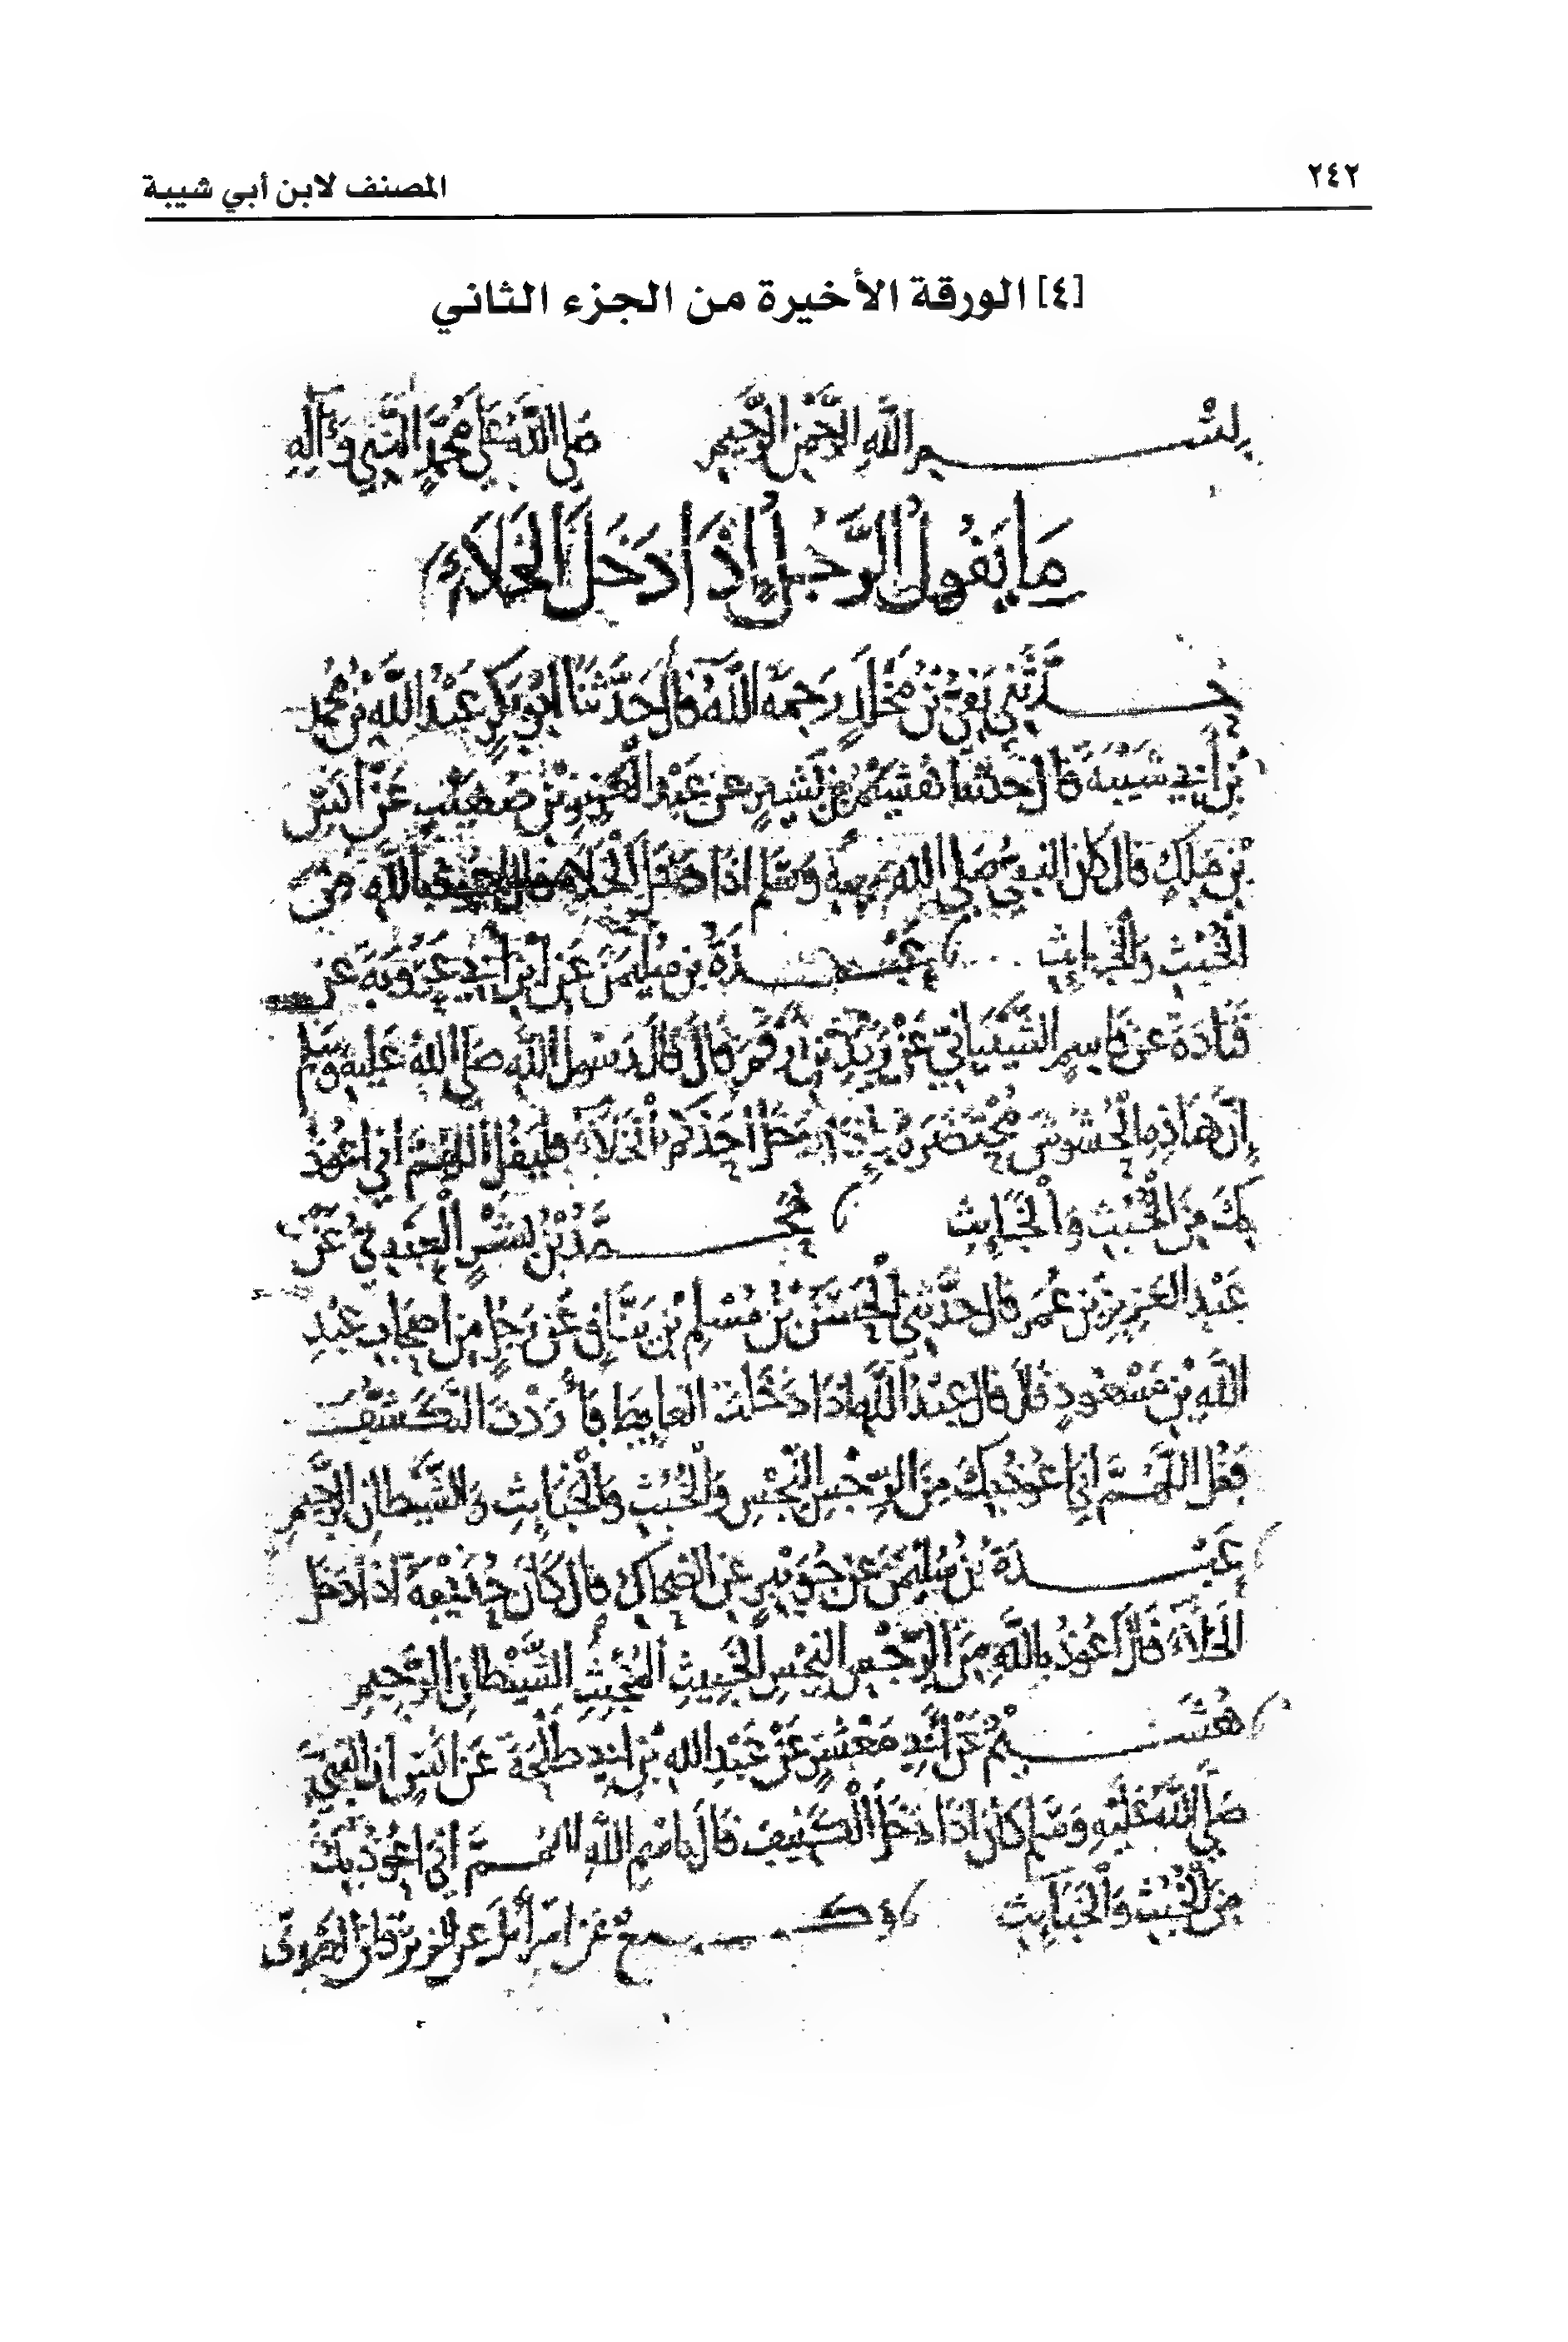 ٢٤٢
المصنف لابن أبي شيبة
[٤] الورقة الأخيرة من الجزء الثاني
بسم الله الرحمن الرحيم صلى الله على محمد النبي وآله
مَا يَقُولُ الرَّجُلُ إِذَا دَخَلَ الْخَلَاءَ
حدثني بقي بن مخلد رحمه الله قال حدثنا ابو بكر عبد الله بن محمد
بن ابي شيبة قال حدثنا هشيم بن بشير عن عبد العزيز بن صهيب عن انس
بن ملك قال كان النبي صلى الله عليه وسلم اذا دخل الخلاء قال اعوذ بالله من
الخبث والخبايث عبدة بن سليمن عن ابن ابي عروبة عن
قتادة عن قاسم الشيباني عن زيد بن ارقم قال قال رسول الله صلى الله عليه وسلم
ان هاذه الحشوش محتضرة فاذا دخل احدكم الخلاء فليقل اللهم اني اعوذ
بك من الخبث والخبايث محمد بن بشر العبدي عن
عبد العزيز بن عمر قال حدثني الحسن بن مسلم بن يناق عن رجل من اصحاب عبد
الله بن مسعود قال قال عبد الله اذا دخلت الغايط فأردت التكشف
فقل اللهم اني اعوذ بك من الرجس النجس والخبث والخبايث والشيطان الرجيم
عبدة بن سليمن عن جويبر عن الضحاك قال كان حذيفة اذا دخل
الخلاء قال اعوذ بالله من الرجس النجس الخبيث المخبث الشيطان الرجيم
هشيم عن ابي معشر عن عبد الله بن ابي طلحة عن انس ان النبي
صلى الله عليه وسلم كان اذا دخل الكنيف قال باسم الله اللهم اني اعوذ بك
من الخبث والخبايث وكيع عن